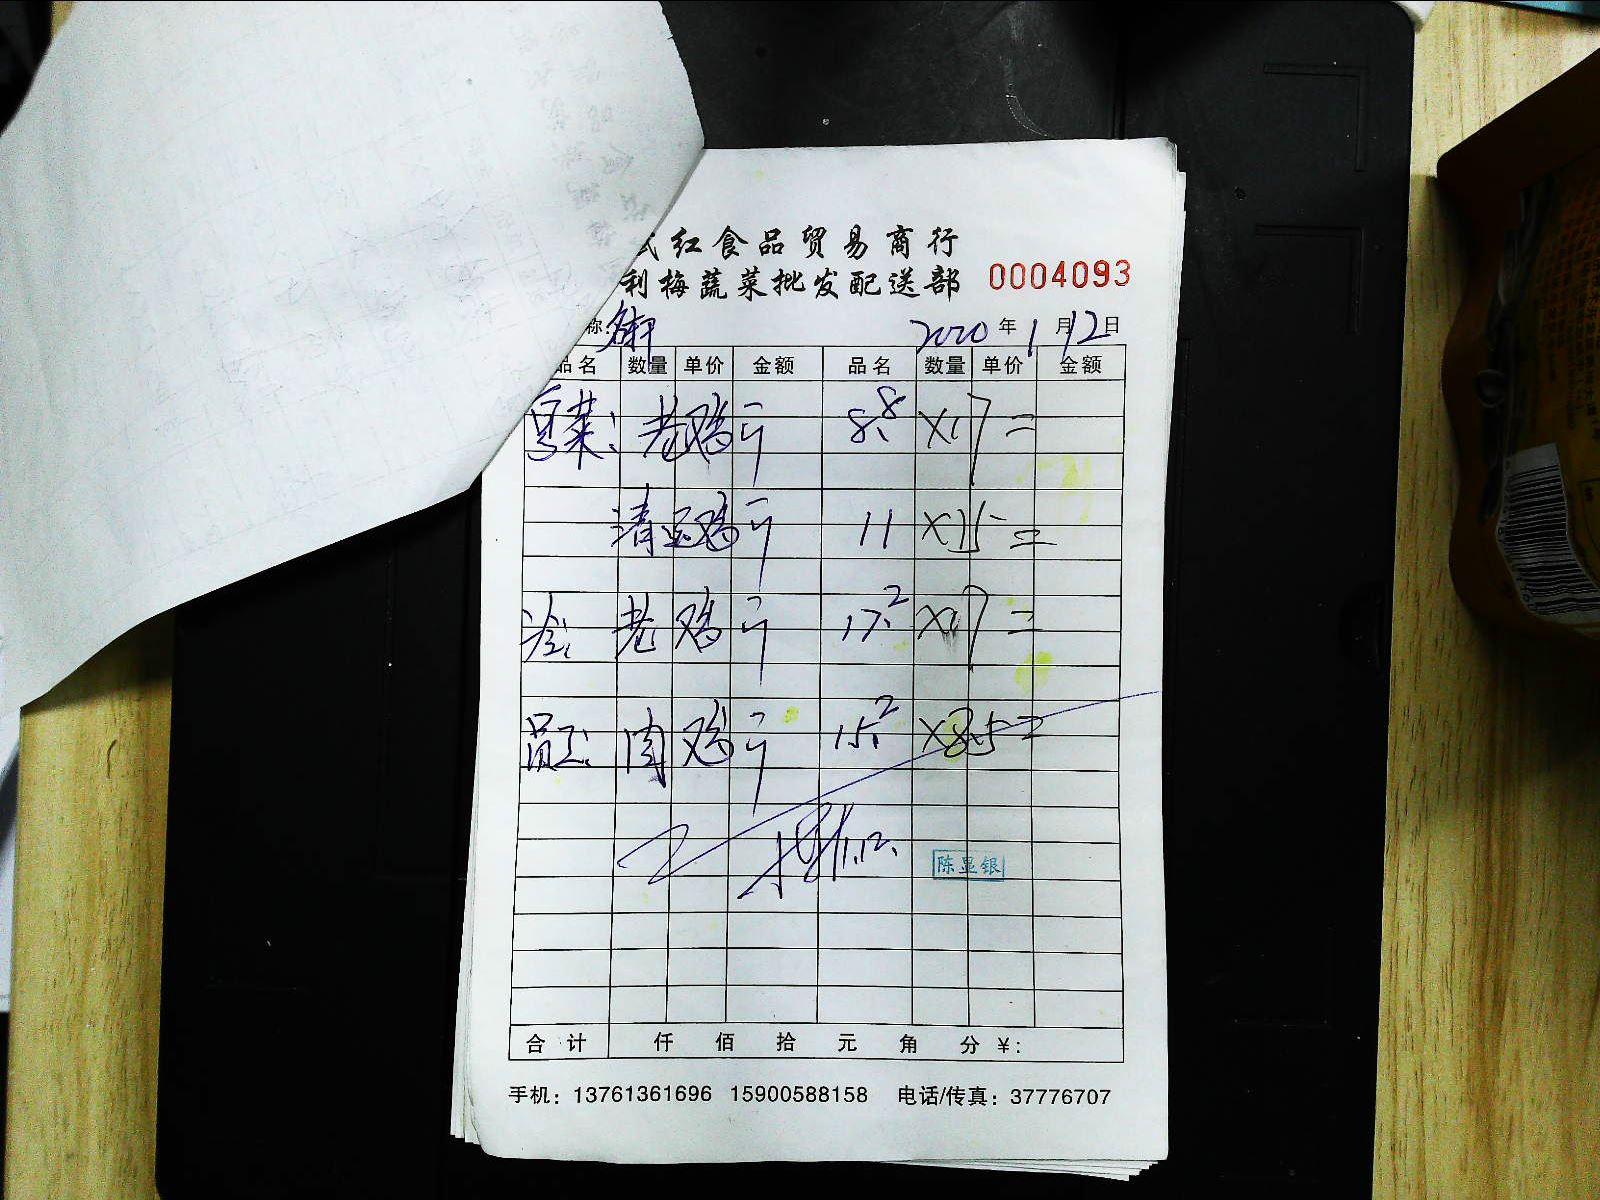 红食品贸易商行
利梅蔬菜批发配送部 0004093
称: 2020年1月12日
品名 数量 单价 金额 品名 数量 单价 金额
菜: 老鸡 8.8 ×17=
清远鸡 11 ×15=
冷: 老鸡 17.2 ×17=
员工: 肉鸡 15.2 ×8.5=
1.12.
陈显银
合计 仟 佰 拾 元 角 分 ¥:
手机: 13761361696 15900588158 电话/传真: 37776707